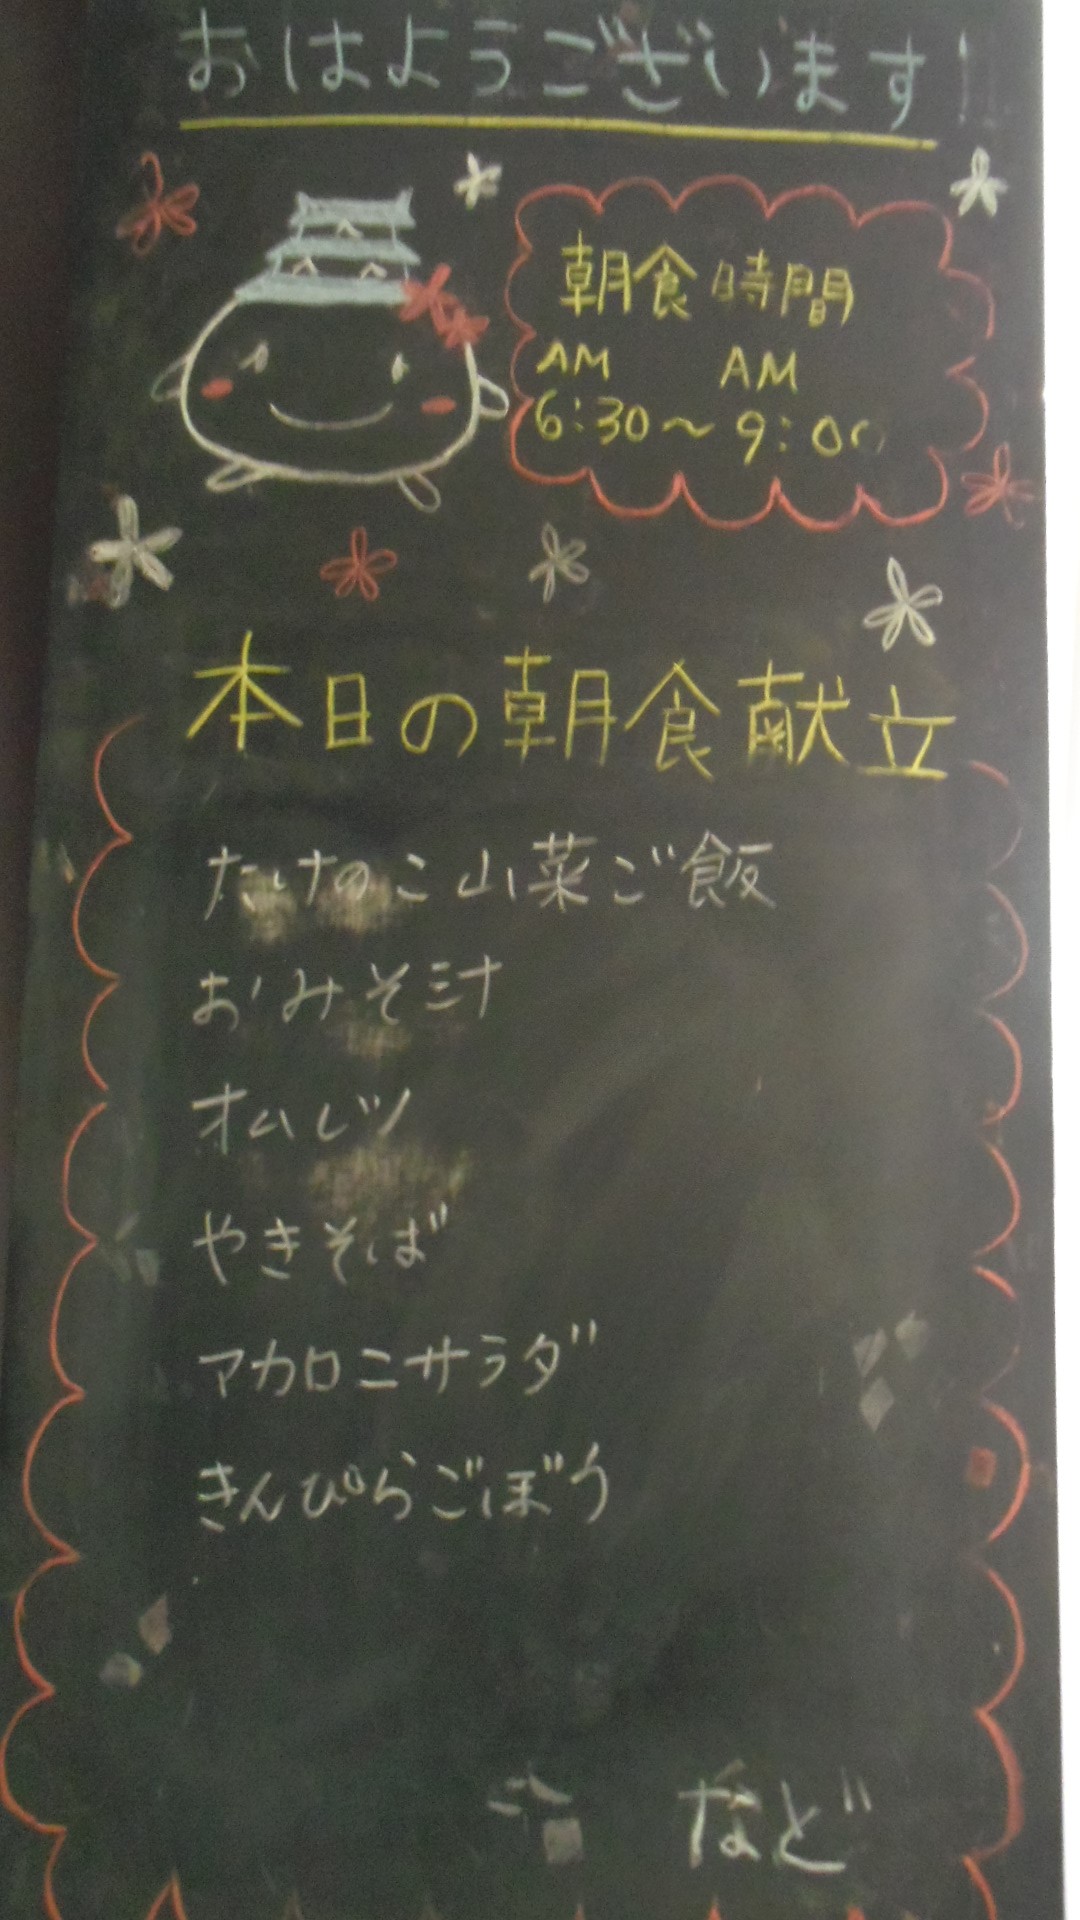 おはようございます!
朝食時間
AM AM
6:30～9:00
本日の朝食献立
たけのこ山菜ご飯
おみそ汁
オムレツ
やきそば
マカロニサラダ
きんぴらごぼう
など